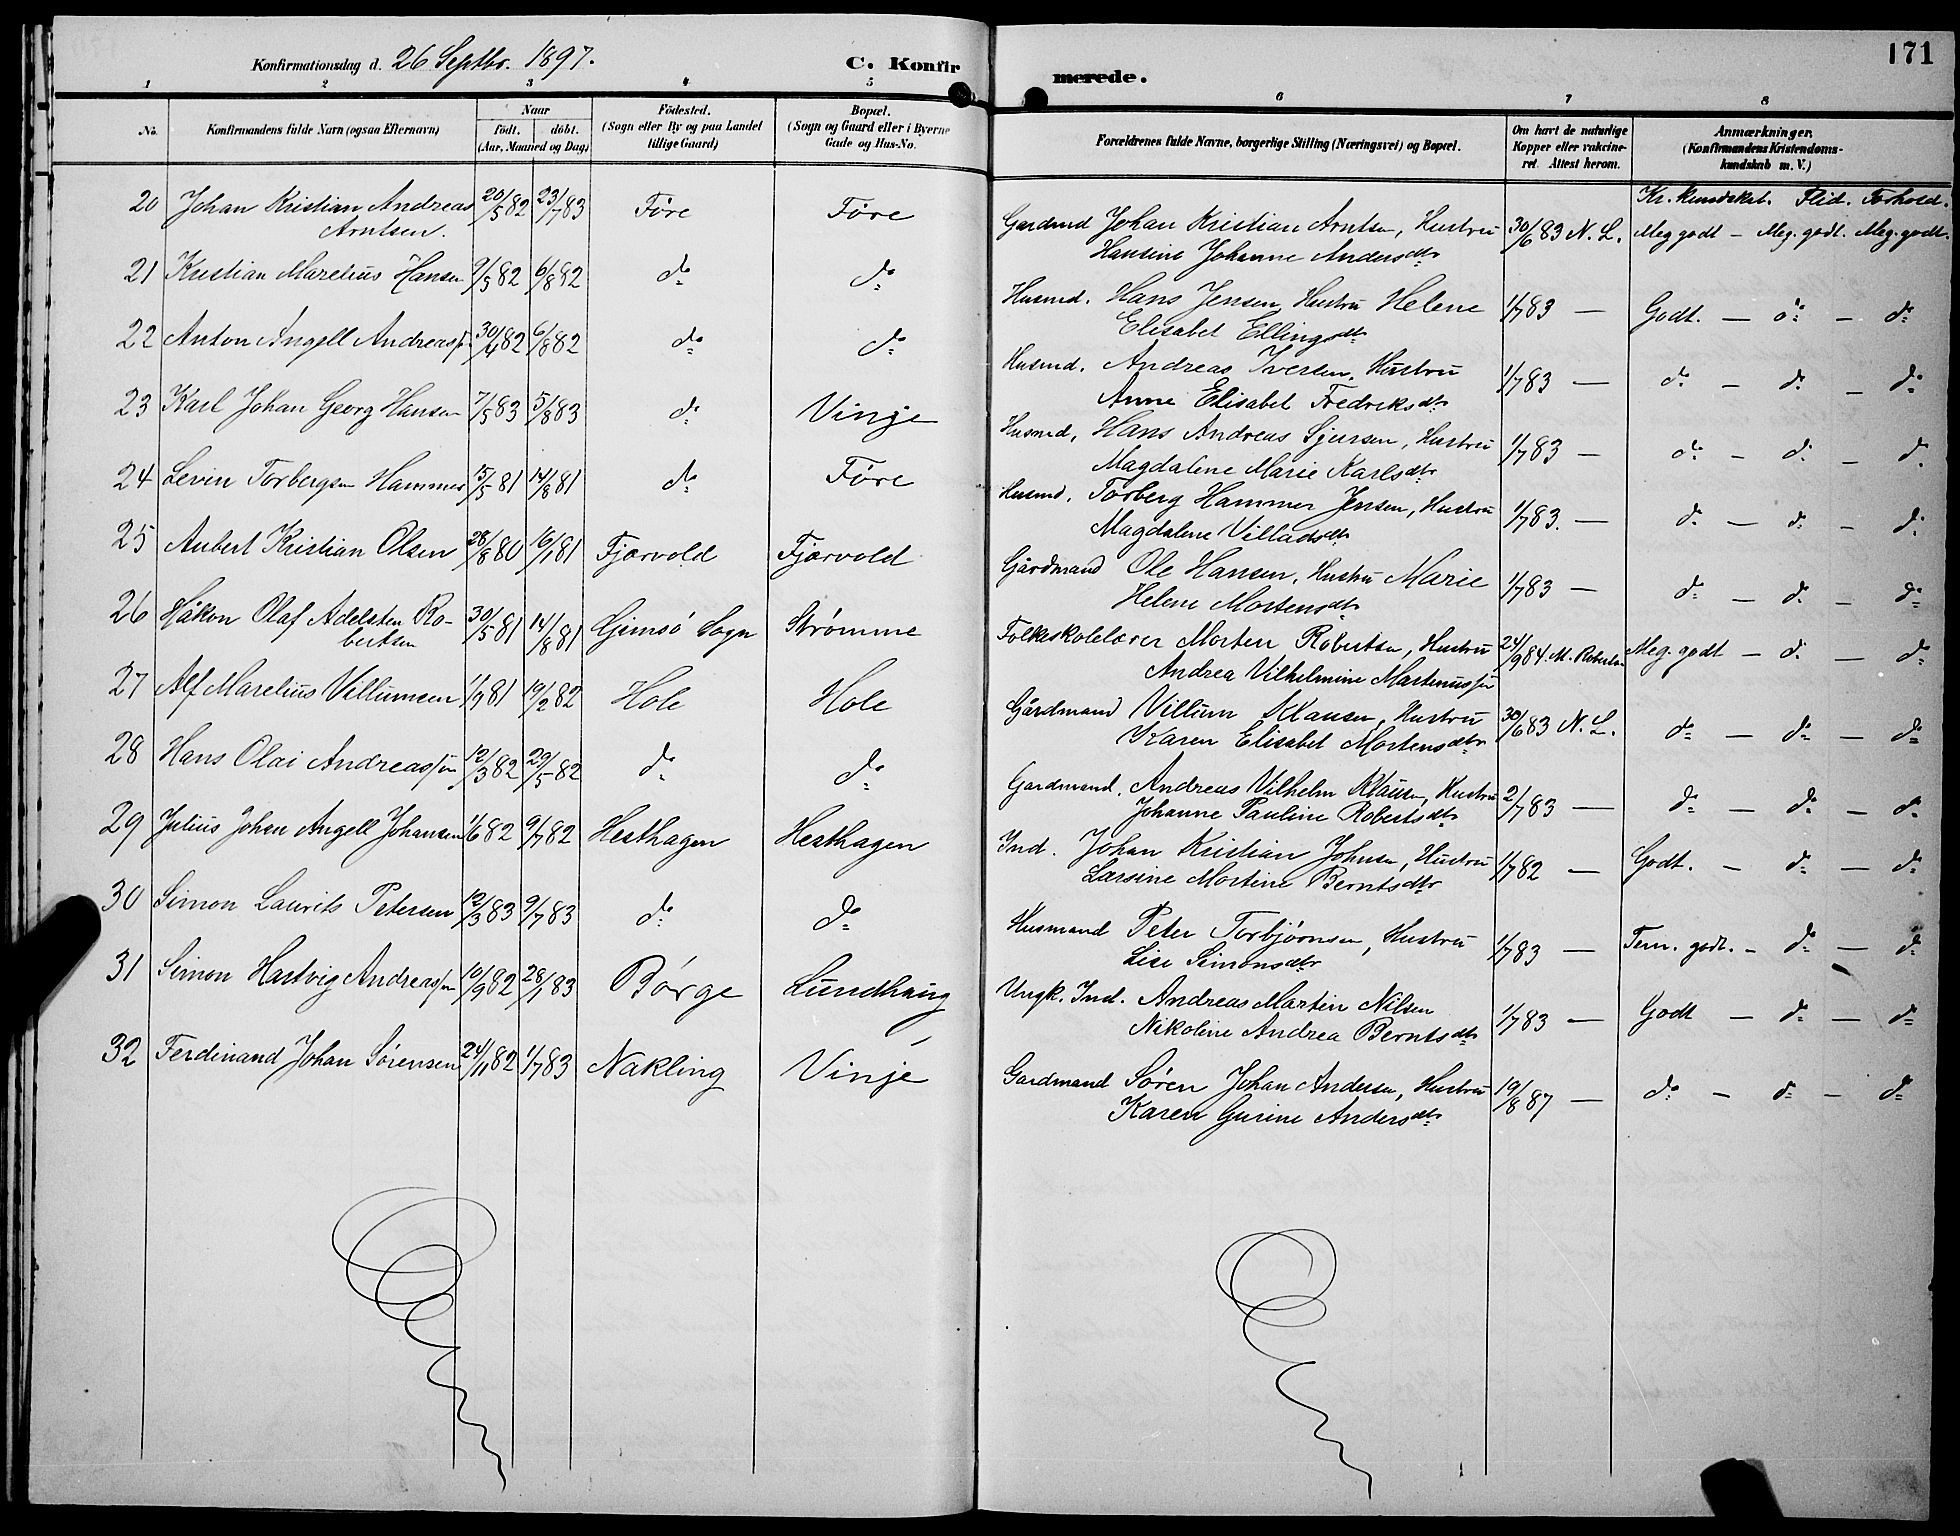 171
Konfirmationsdag d. 26 Septbr. 1897. C. Konfirmerede.
1 2 3 4 5 6 7 8
No. Konfirmandens fulde Navn (ogsaa Efternavn) Naar født. døbt. (Aar, Maaned og Dag) Fødested. (Sogn eller By og paa Landet tillige Gaard) Bopæl. (Sogn og Gaard eller i Byerne Gade og Hus-No. Forældrenes fulde Navne, borgerlige Stilling (Næringsvei) og Bopæl. Om havt de naturlige Kopper eller vakcineret. Attest herom. Anmærkninger. (Konfirmandens Kristendomskundskab m. V.)
Kr. kundskab. Flid. Forhold.
20 Johan Kristian Andreas 20/5 82 23/7 83 Føre Føre Gardmd Johan Kristian Arntsen, Hustru 30/6 83 N. L. Meg godt – Meg. godt. Meg. godt.
Arntsen. Hansine Johanne Andersdtr
21 Kristian Marelius Hansen 9/5 82 6/8 82 do do Husmd. Hans Jensen, Hustru Helene 1/7 83 — Godt. — do — do
Elisabet Ellingsdtr
22 Anton Angell Andreassen 30/4 82 6/8 82 do do Husmd. Andreas Iversen, Hustru 1/7 83 — do — do — do
Anne Elisabet Fredriksdtr
23 Karl Johan Georg Hansen 7/5 83 5/8 83 do Vinje Husmd, Hans Andreas Sjursen, Hustru 1/7 83 — do — do — do
Magdalene Marie Karlsdtr
24 Levin Torbergsen Hammer 15/5 81 14/8 81 do Føre Husmd. Torberg Hammer Jensen, Hustru 1/7 83. — do — do — do
Magdalene Villadsdtr
25 Aubert Kristian Olsen 28/8 80 16/1 81 Fjærvold Fjærvold Gårdmand Ole Hansen, Hustru Marie 1/7 83 — do — do — do
Helene Mortensdtr
26 Håkon Olaf Adelsten Ro- 30/5 81 14/8 81 Gimsö Sogn Strømme Folkeskolelærer Morten Robertsen, Hustru 24/9 84 M. Robertsen Meg. godt — do — do
bertsen Andrea Vilhelmine Martinussen
27 Alf Marelius Villumsen 1/9 81 19/2 82 Hole Hole Gårdmand Villum Klausen, Hustru 30/6 83 N. L. do — do — do
Karen Elisabet Mortensdtr
28 Hans Olai Andreassen 12/3 82 29/5 82 do do Gardmand, Andreas Vilhelm Klausen, Hustru 2/7 83 — do — do — do
Johanne Pauline Robertsdtr
29 Julius Johan Angell Johansen 1/6 82 9/7 82 Hesthagen Hesthagen Ind. Johan Kristian Johnsen, Hustru 1/7 82 — Godt. — do — do
Larsine Mortine Berntsdtr
30 Simon Laurits Petersen 12/3 83 9/7 83 do do Husmand Peter Torbjørnsen, Hustru 1/7 83 — Tem. godt. — do — do
Lise Simonsdtr
31 Simon Hartvig Andreassen 10/9 82 28/1 83 Børge Lundhaug Ungk. Ind. Andreas Martin Nilsen 1/7 83 — Godt — do — do
Nikoline Andrea Berntsdtr
32 Ferdinand Johan Sørensen 24/11 82 1/7 83 Nakling Vinje Gardmand Søren Johan Andersen, Hustru 19/8 87 — do — do — do
Karen Gurine Andersdtr